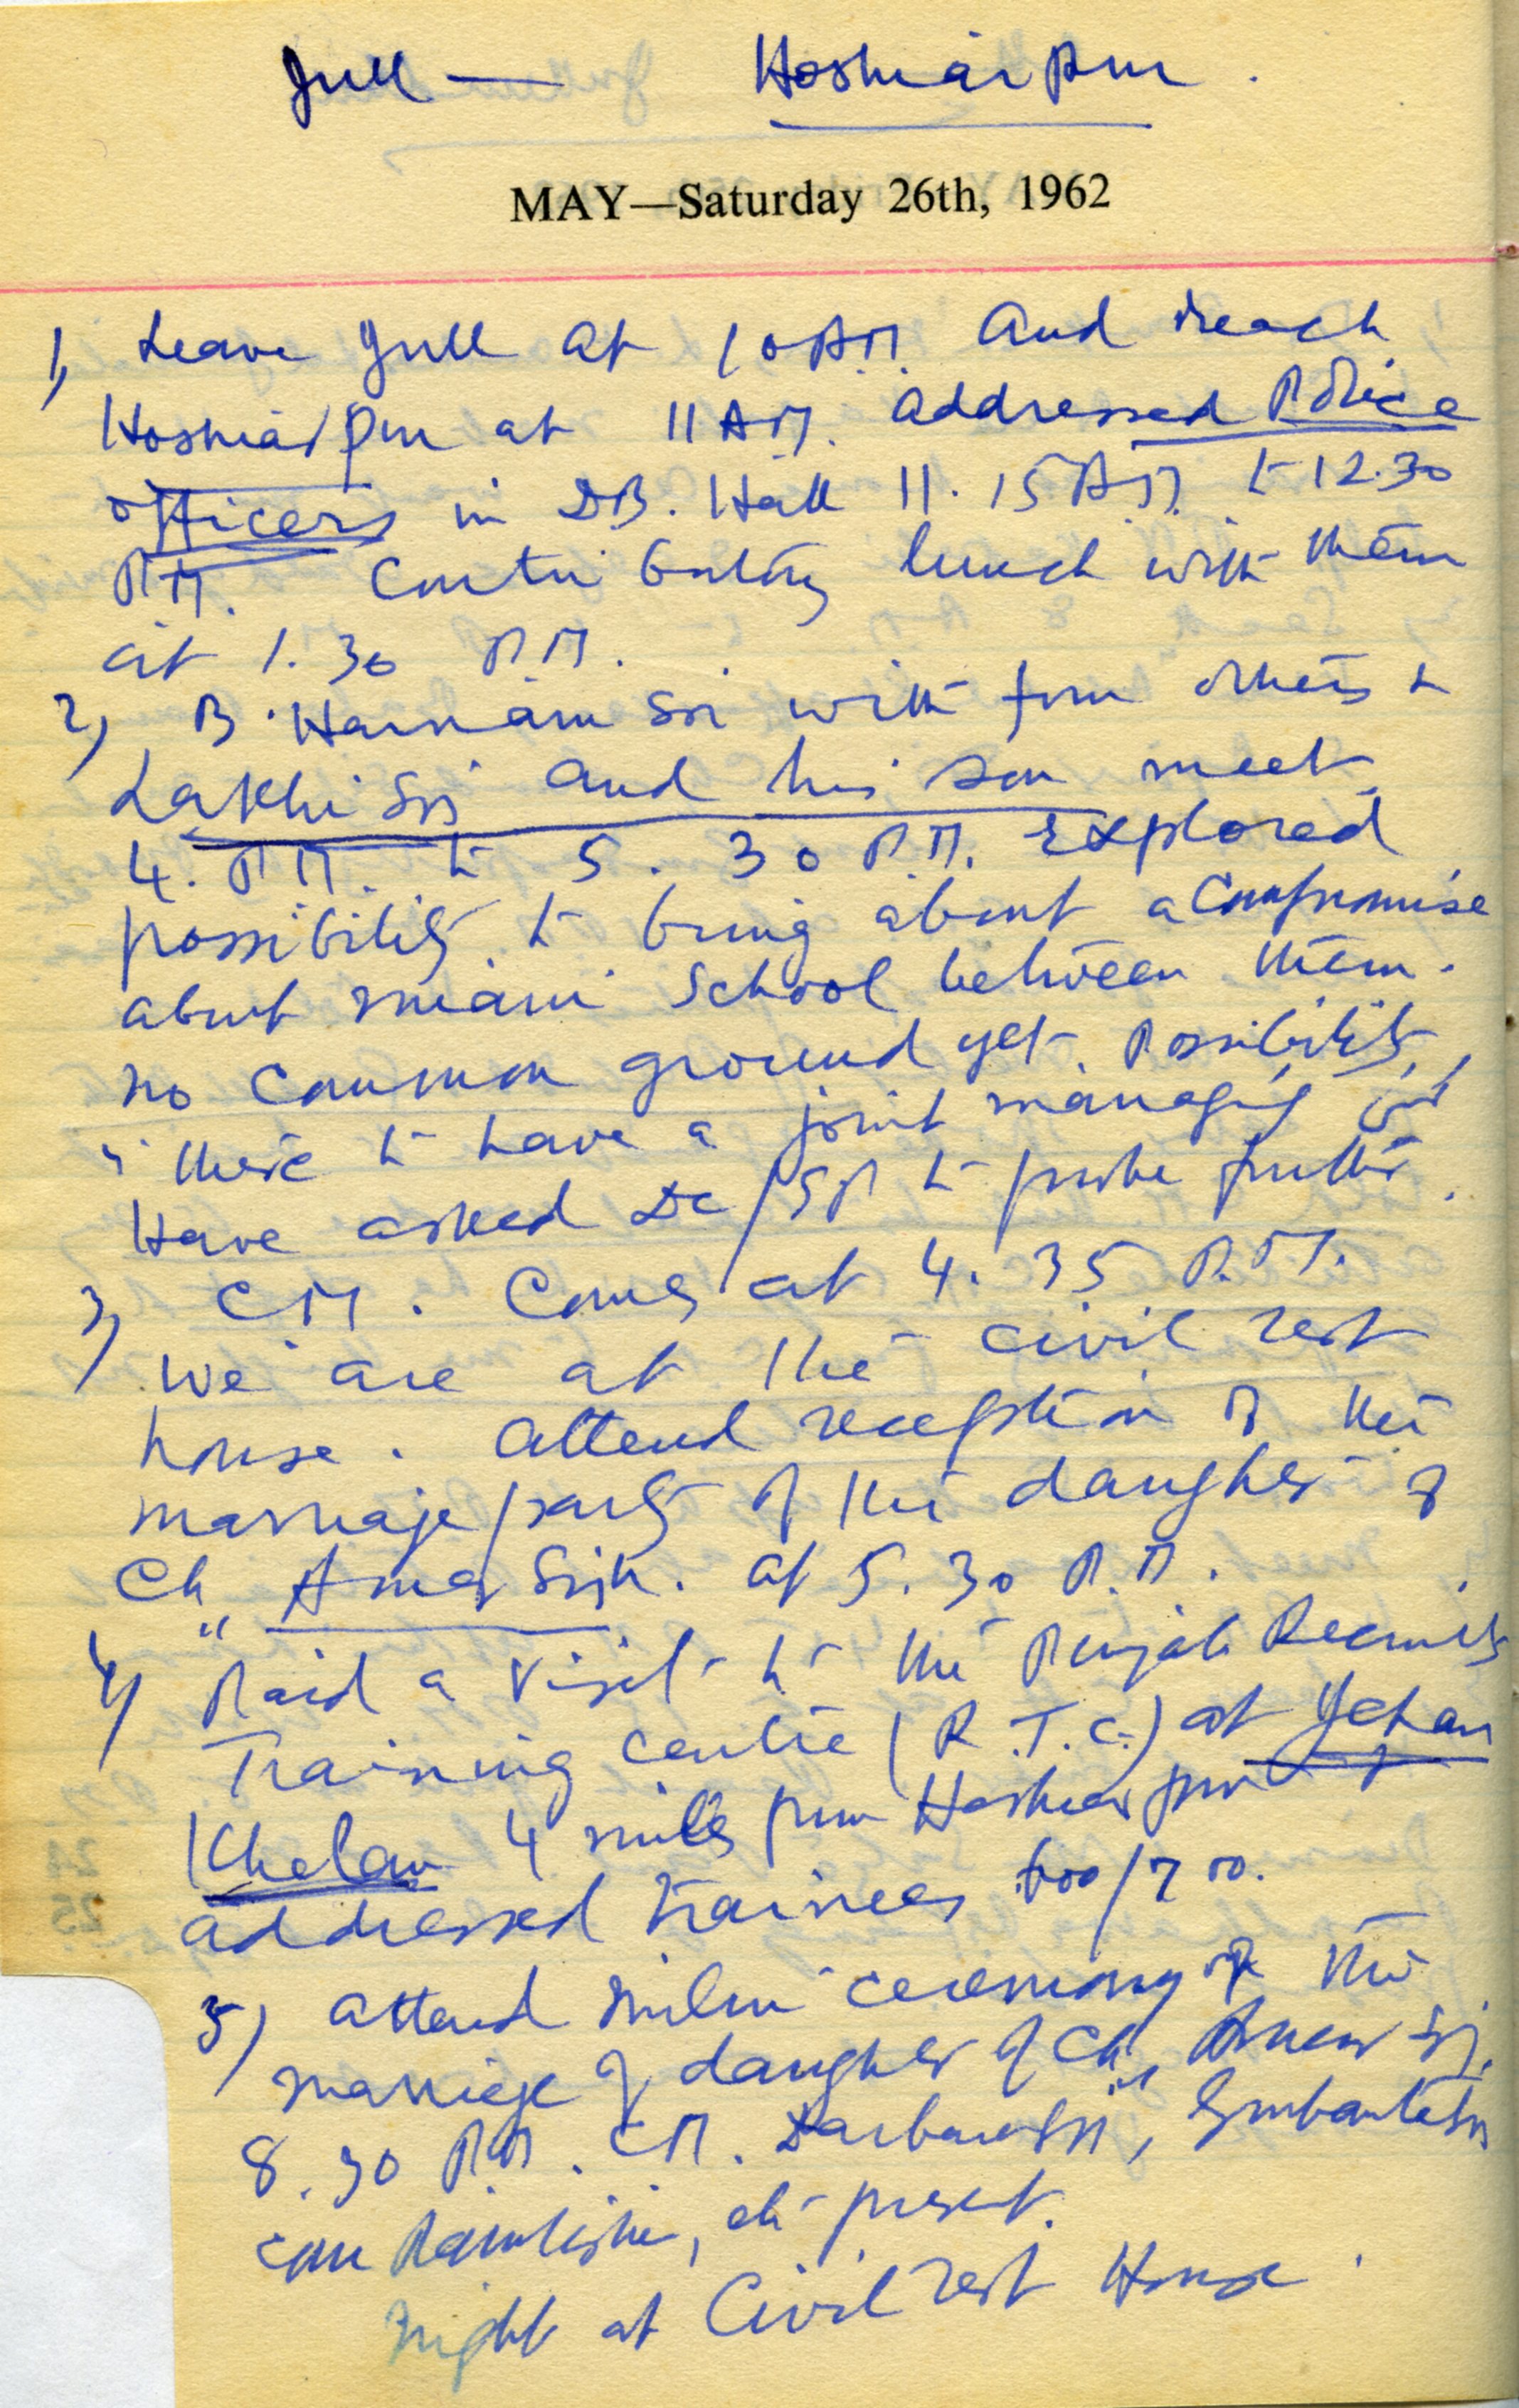 Jull — Hoshiarpur.
MAY—Saturday 26th, 1962
1) Leave Jull at 10 A.M. and reach
Hoshiarpur at 11 A.M. addressed Police
officers in D.B. Hall 11.15 A.M. to 12.30
P.M. Contributory lunch with them
at 1.30 P.M.
2) B. Harnam Sn with four others &
Lakhi Sn and his son meet
4. P.M. to 5.30 P.M. Explored
possibility to bring about a compromise
about Miani School between them.
No common ground yet. Possibility
is there to have a joint managing
Have asked DC/SP to probe further.
3) C.M. comes at 4.35 P.M.
We are at the civil rest
house. Attend reception of the
marriage party of the daughter of
Ch" Amar Singh. at 5.30 P.M.
4) Paid a visit to the Punjab Recruits
Training Centre (R.T.C.) at Jehan
Khelan 4 miles from Hoshiarpur
addressed trainees 600/700.
5) Attend milni ceremony of the
marriage of daughter of Ch" Amar Sn.
8.30 P.M. C.M. Darbara Sn, Gurbanta Sn
Ram Kishen, etc present.
Night at Civil rest House.